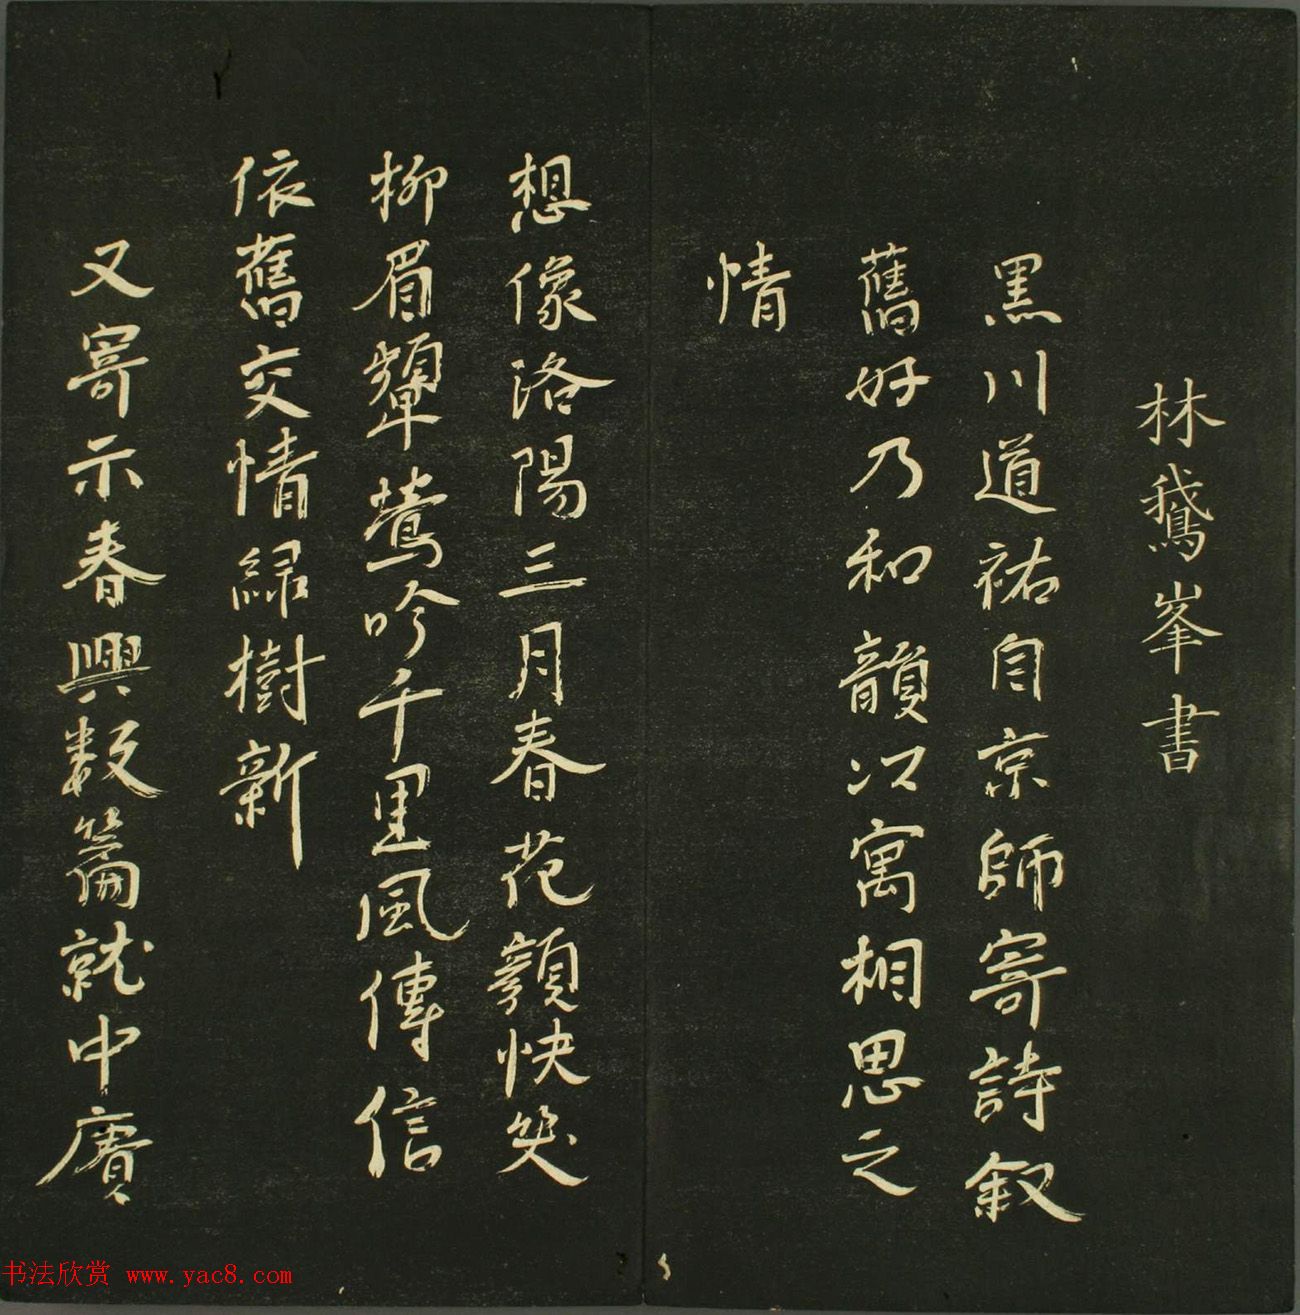 林鵞峯書
黒川道祐自京師寄詩叙
舊好乃和韻以寓相思之
情
想像洛陽三月春花顏快笑
柳眉顰鶯吟千里風傳信
依舊交情緑樹新
又寄示春興数篇就中賡
书法欣赏 www.yac8.com